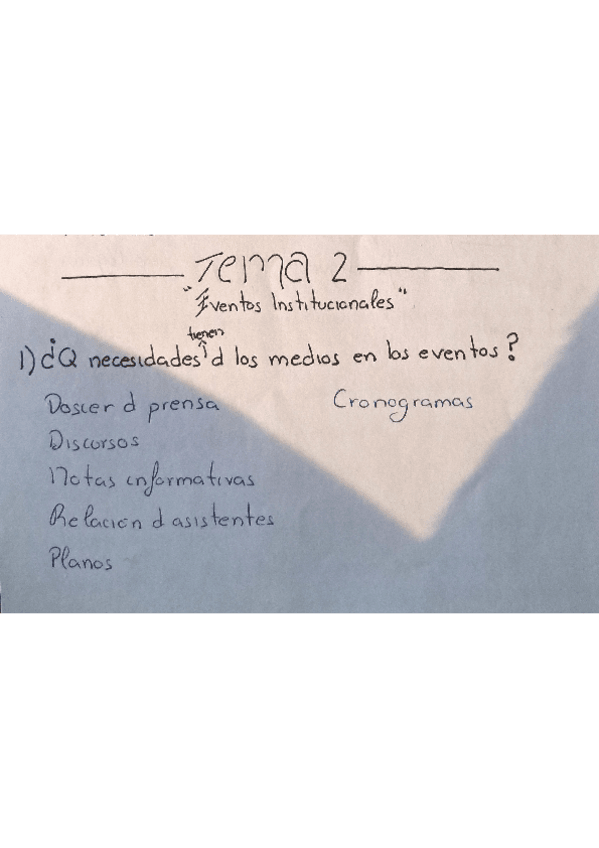 Tema 2
"Eventos Institucionales"
1) ¿Q necesidades tienen d los medios en los eventos?
Dosier d prensa
Cronogramas
Discursos
Notas informativas
Relacion d asistentes
Planos